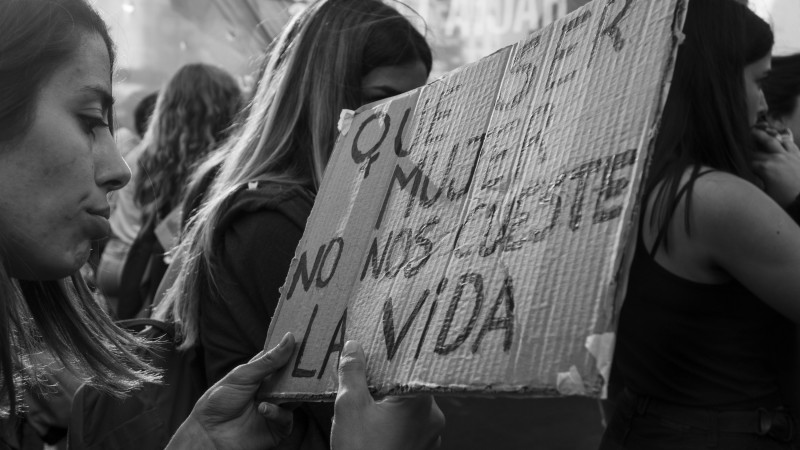 QUE SER
MUJER
NO NOS CUESTE
LA VIDA